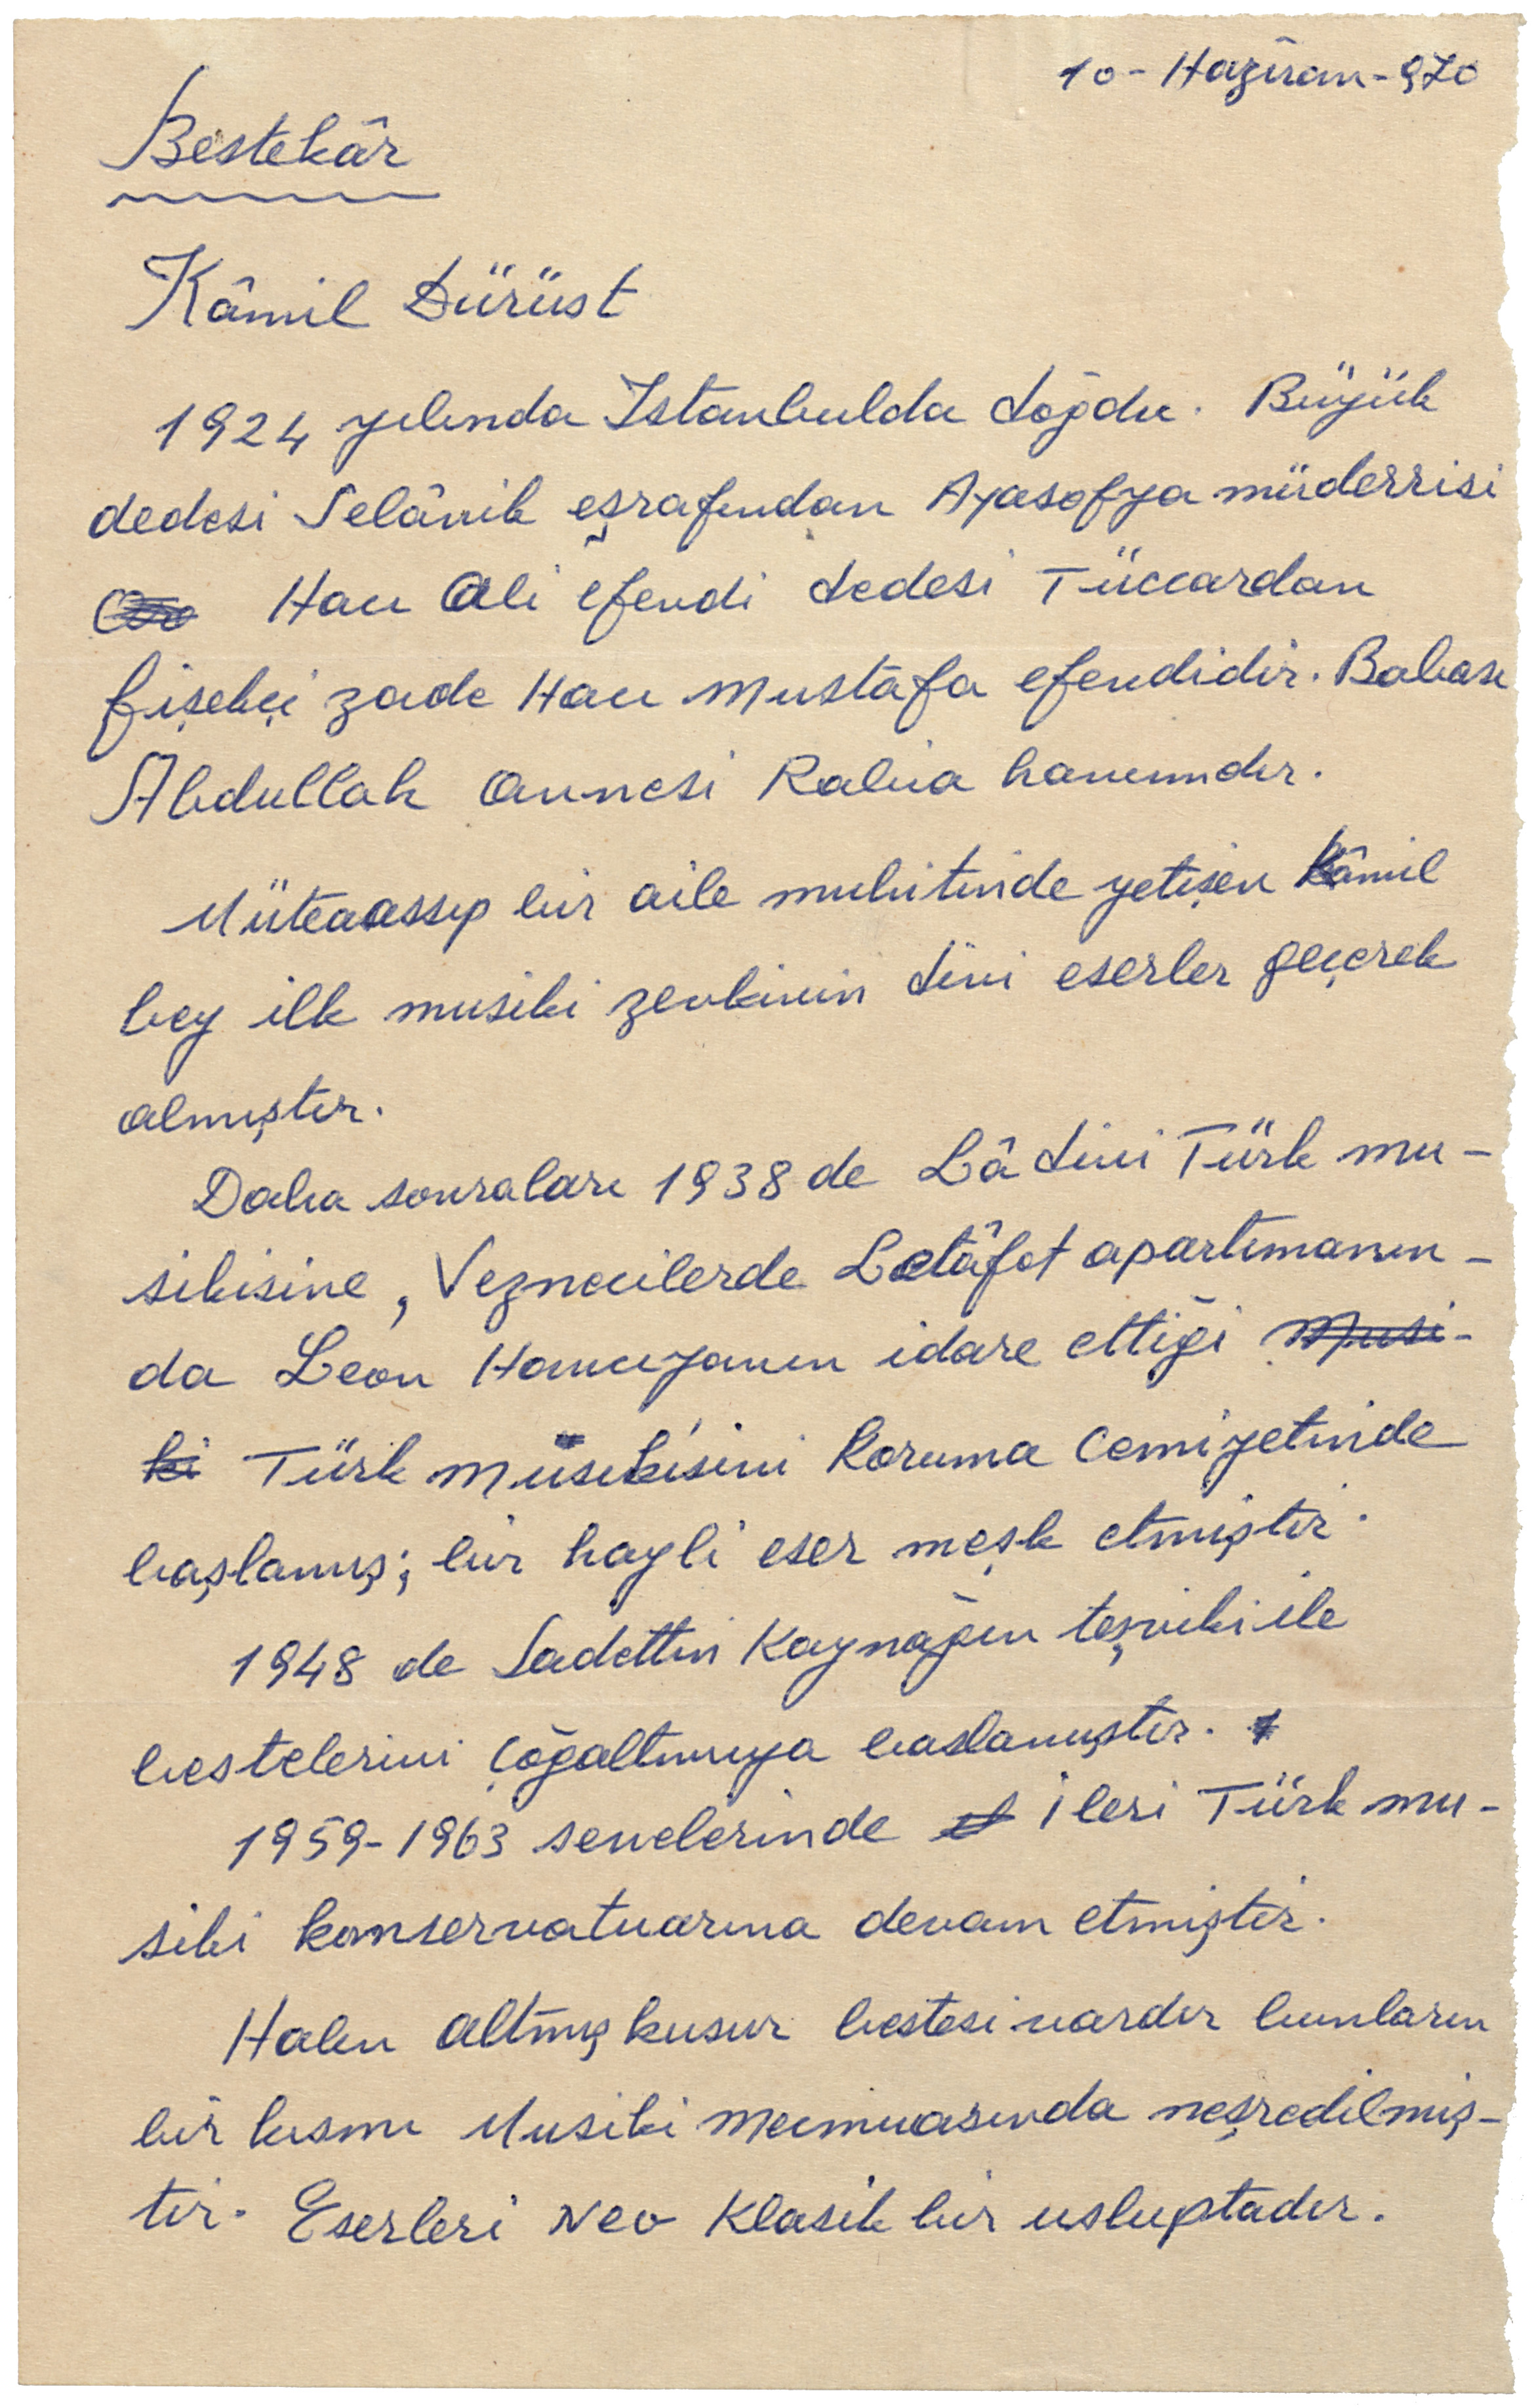 10 - Haziran - 970
Bestekâr
Kâmil Dürüst
1924 yılında Istanbulda doğdu. Büyük
dedesi Selânik eşrafından Ayasofya müderrisi
Hacı Ali efendi dedesi Tüccardan
fişekçi zade Hacı Mustafa efendidir. Babası
Abdullah annesi Rabia hanımdır.
Müteaassıp bir aile muhitinde yetişen Kâmil
bey ilk musiki zevkinin dini eserler geçerek
almıştır.
Daha sonraları 1938 de Lâ dini Türk mu-
sikisine, Veznecilerde Letâfet apartımanın-
da Leon Hancıyanın idare ettiği Musi-
ki Türk Musikisini Koruma Cemiyetinde
başlamış; bir hayli eser meşk etmiştir.
1948 de Sadettin Kaynağın teşviki ile
bestelerini çoğaltmıya başlamıştır.
1959-1963 senelerinde İleri Türk mu-
siki konservatuarına devam etmiştir.
Halen altmış kusur bestesi vardır bunların
bir kısmı Musiki Mecmuasında neşredilmiş-
tir. Eserleri Neo Klasik bir usluptadır.